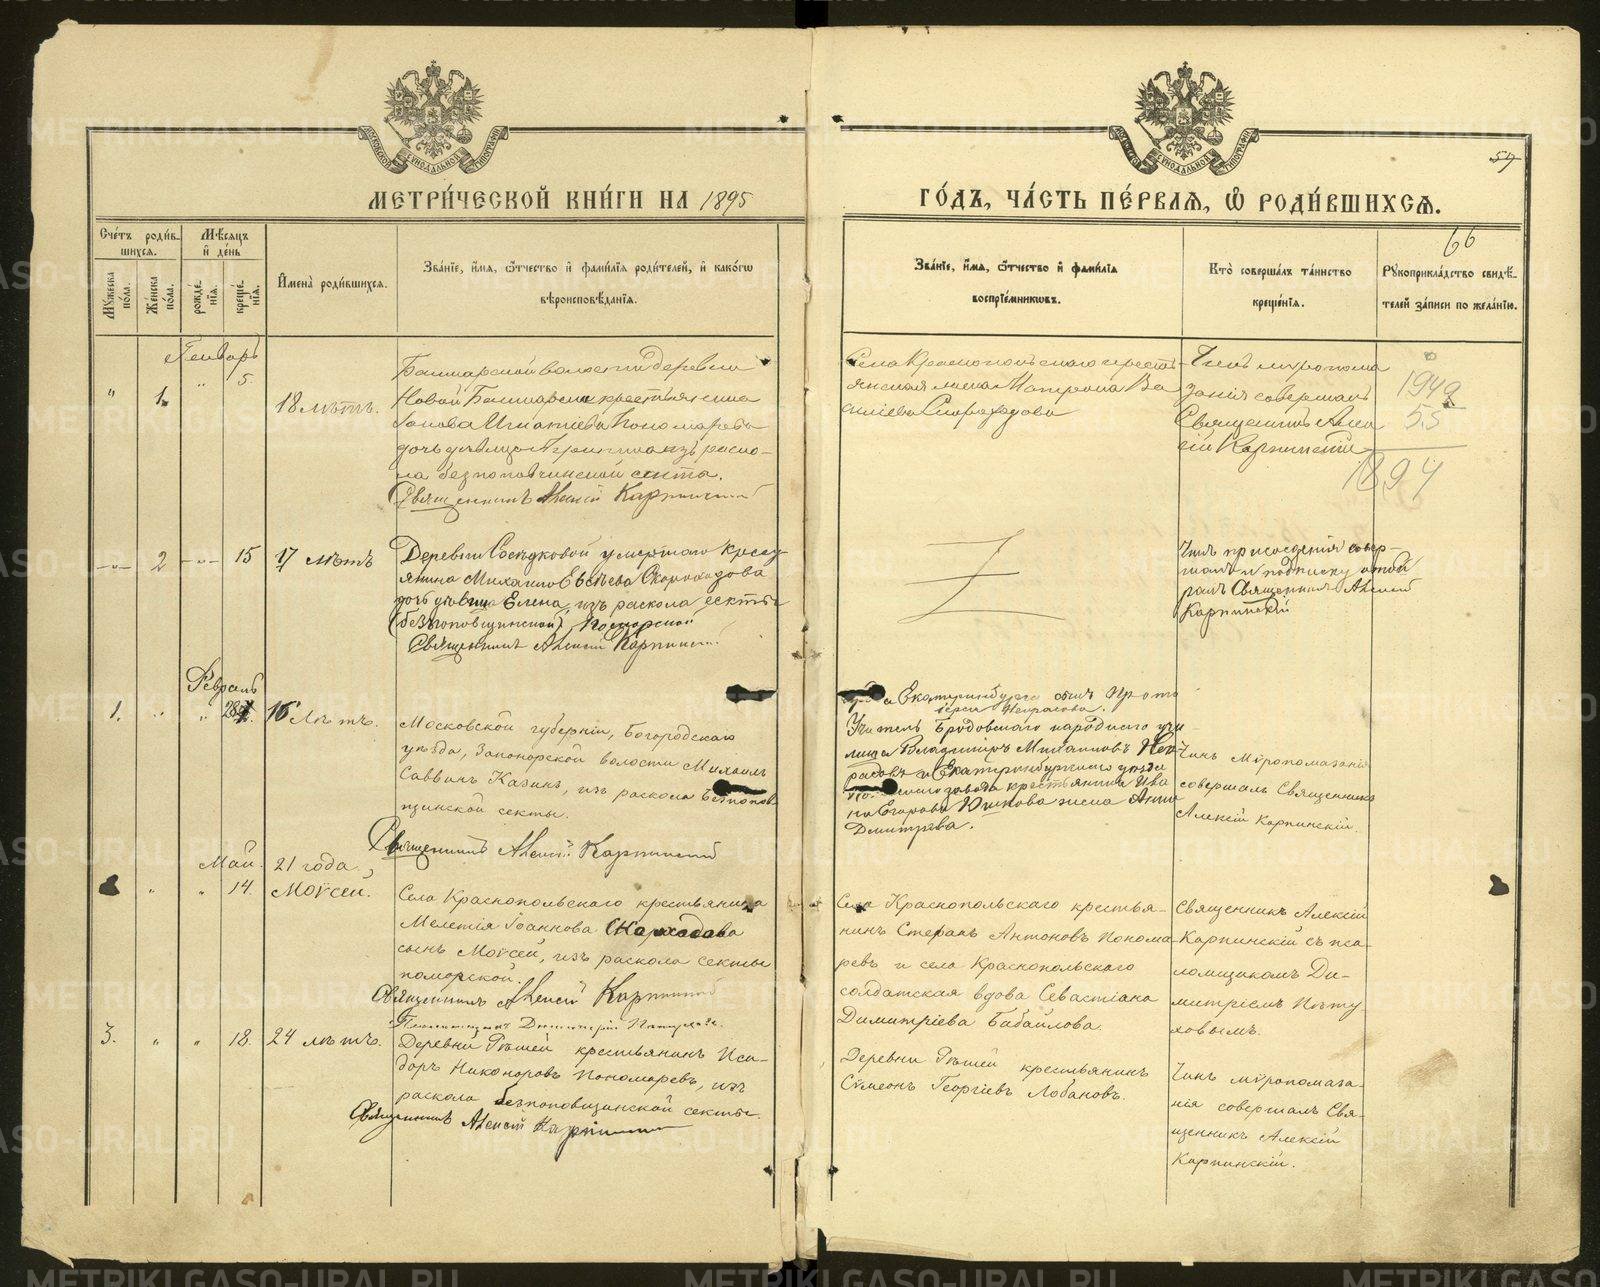 МЕТРИ́ЧЕСКОЙ КНИ́ГИ НА 1895
ГО́ДЪ, ЧА́СТЬ ПЕ́РВАѦ, Ѡ РОДИ́ВШИХСѦ.
57
66
Сче́тъ роди́в-
шихся.
Мѣ́сяцъ
и де́нь
Мꙋ́жеска по́ла.
Же́нска по́ла.
рожде́нїѧ.
креще́нїѧ.
Имена̀ роди́вшихся.
Зва́нїе, и́мѧ, ѻ́тчество и фами́лїѧ роди́телей, и како́гѡ
вѣроисповѣ́данїѧ.
Зва́нїе, и́мѧ, ѻ́тчество и фами́лїѧ
воспрїе́мникѡвъ.
Кто̀ соверша́лъ та́инство
креще́нїѧ.
Рꙋкоприкла́дство свидѣ́-
телей за́писи по жела́нїю.
Генварь
" 1. " 5.
18 лѣтъ.
Башкарской волости деревни
Новой Башкарки крестьянина
Iакова Игнатіева Пономарева
дочь дѣвица изъ раско-
ла безпоповщинской секты.
Священникъ Алексій Карпинскій
Села Краснопольскаго кресть
янская жена Матрона Ва
силіева Скороходова
Чинъ муропома
занія совершалъ
Священникъ Алек
сій Карпинскій
1949
55
1894
2 15
17 лѣтъ
Деревни Сосѣдковой умершаго крест
янина Михаила Евсѣева Скороходова
дочь дѣвица Елена, изъ раскола секты
(безпоповщинской) Поморской
Священникъ Алексій Карпинскій
Z
Чинъ присоединія совер-
шалъ и подписку отоб
ралъ Священникъ Алексій
Карпинскій
Февраль
1. " " 28.
16 лѣтъ.
Московской губерніи, Богородскаго
уѣзда, Запонорской волости Михаилъ
Саввинъ Казинъ, изъ раскола безпопов
щинской секты.
Священникъ Алексій Карпинскій
Екатеринбурга сынъ Прото
іерея Некрасова.
Учитель Бродовскаго народнаго учи
лища Владиміръ Михаиловъ Нек-
расовъ и Екатеринбургскаго уѣзда
завода крестьянина Ива
на Егорова Юшкова жена Анна
Дмитрева.
Чинъ Мѵропомазанія
совершалъ Священникъ
Алексій Карпинскій.
Май.
" " 14.
21 года,
Моѵсей.
Села Краснопольскаго крестьянина
Мелетія Іоаннова Скороходова
сынъ Моѵсей, изъ раскола секты
поморской.
Священникъ Алексій Карпинскій
Псаломщикъ Димитрій Пѣтуховъ.
Села Краснопольскаго крестья-
нинъ Стефанъ Антоновъ Понома-
ревъ и села Краснопольскаго
солдатская вдова Севастіана
Димитріева Бабайлова.
Священникъ Алексій
Карпинскій съ пса-
ломщикомъ Ди-
митріемъ Пѣту-
ховымъ.
3. " " 18.
24 лѣтъ.
Деревни Рѣшей крестьянинъ Иси-
доръ Никоноровъ Пономаревъ, изъ
раскола безпоповщинской секты.
Священникъ Алексій Карпинскій
Деревни Рѣшей крестьянинъ
Сѵмеонъ Георгіевъ Лобановъ.
Чинъ мѵропомаза-
нія совершалъ Свя-
щенникъ Алексій
Карпинскій.
METRIKI.GASO-URAL.RU